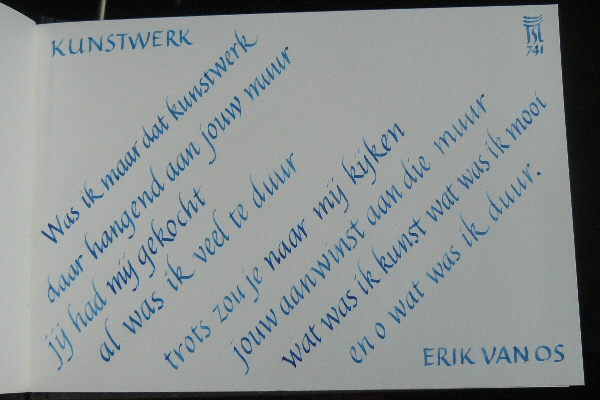 KUNSTWERK
TSL
741
Was ik maar dat kunstwerk
daar hangend aan jouw muur
jij had mij gekocht
al was ik veel te duur
trots zou je naar mij kijken
jouw aanwinst aan die muur
wat was ik kunst wat was ik mooi
en o wat was ik duur.
ERIK VAN OS